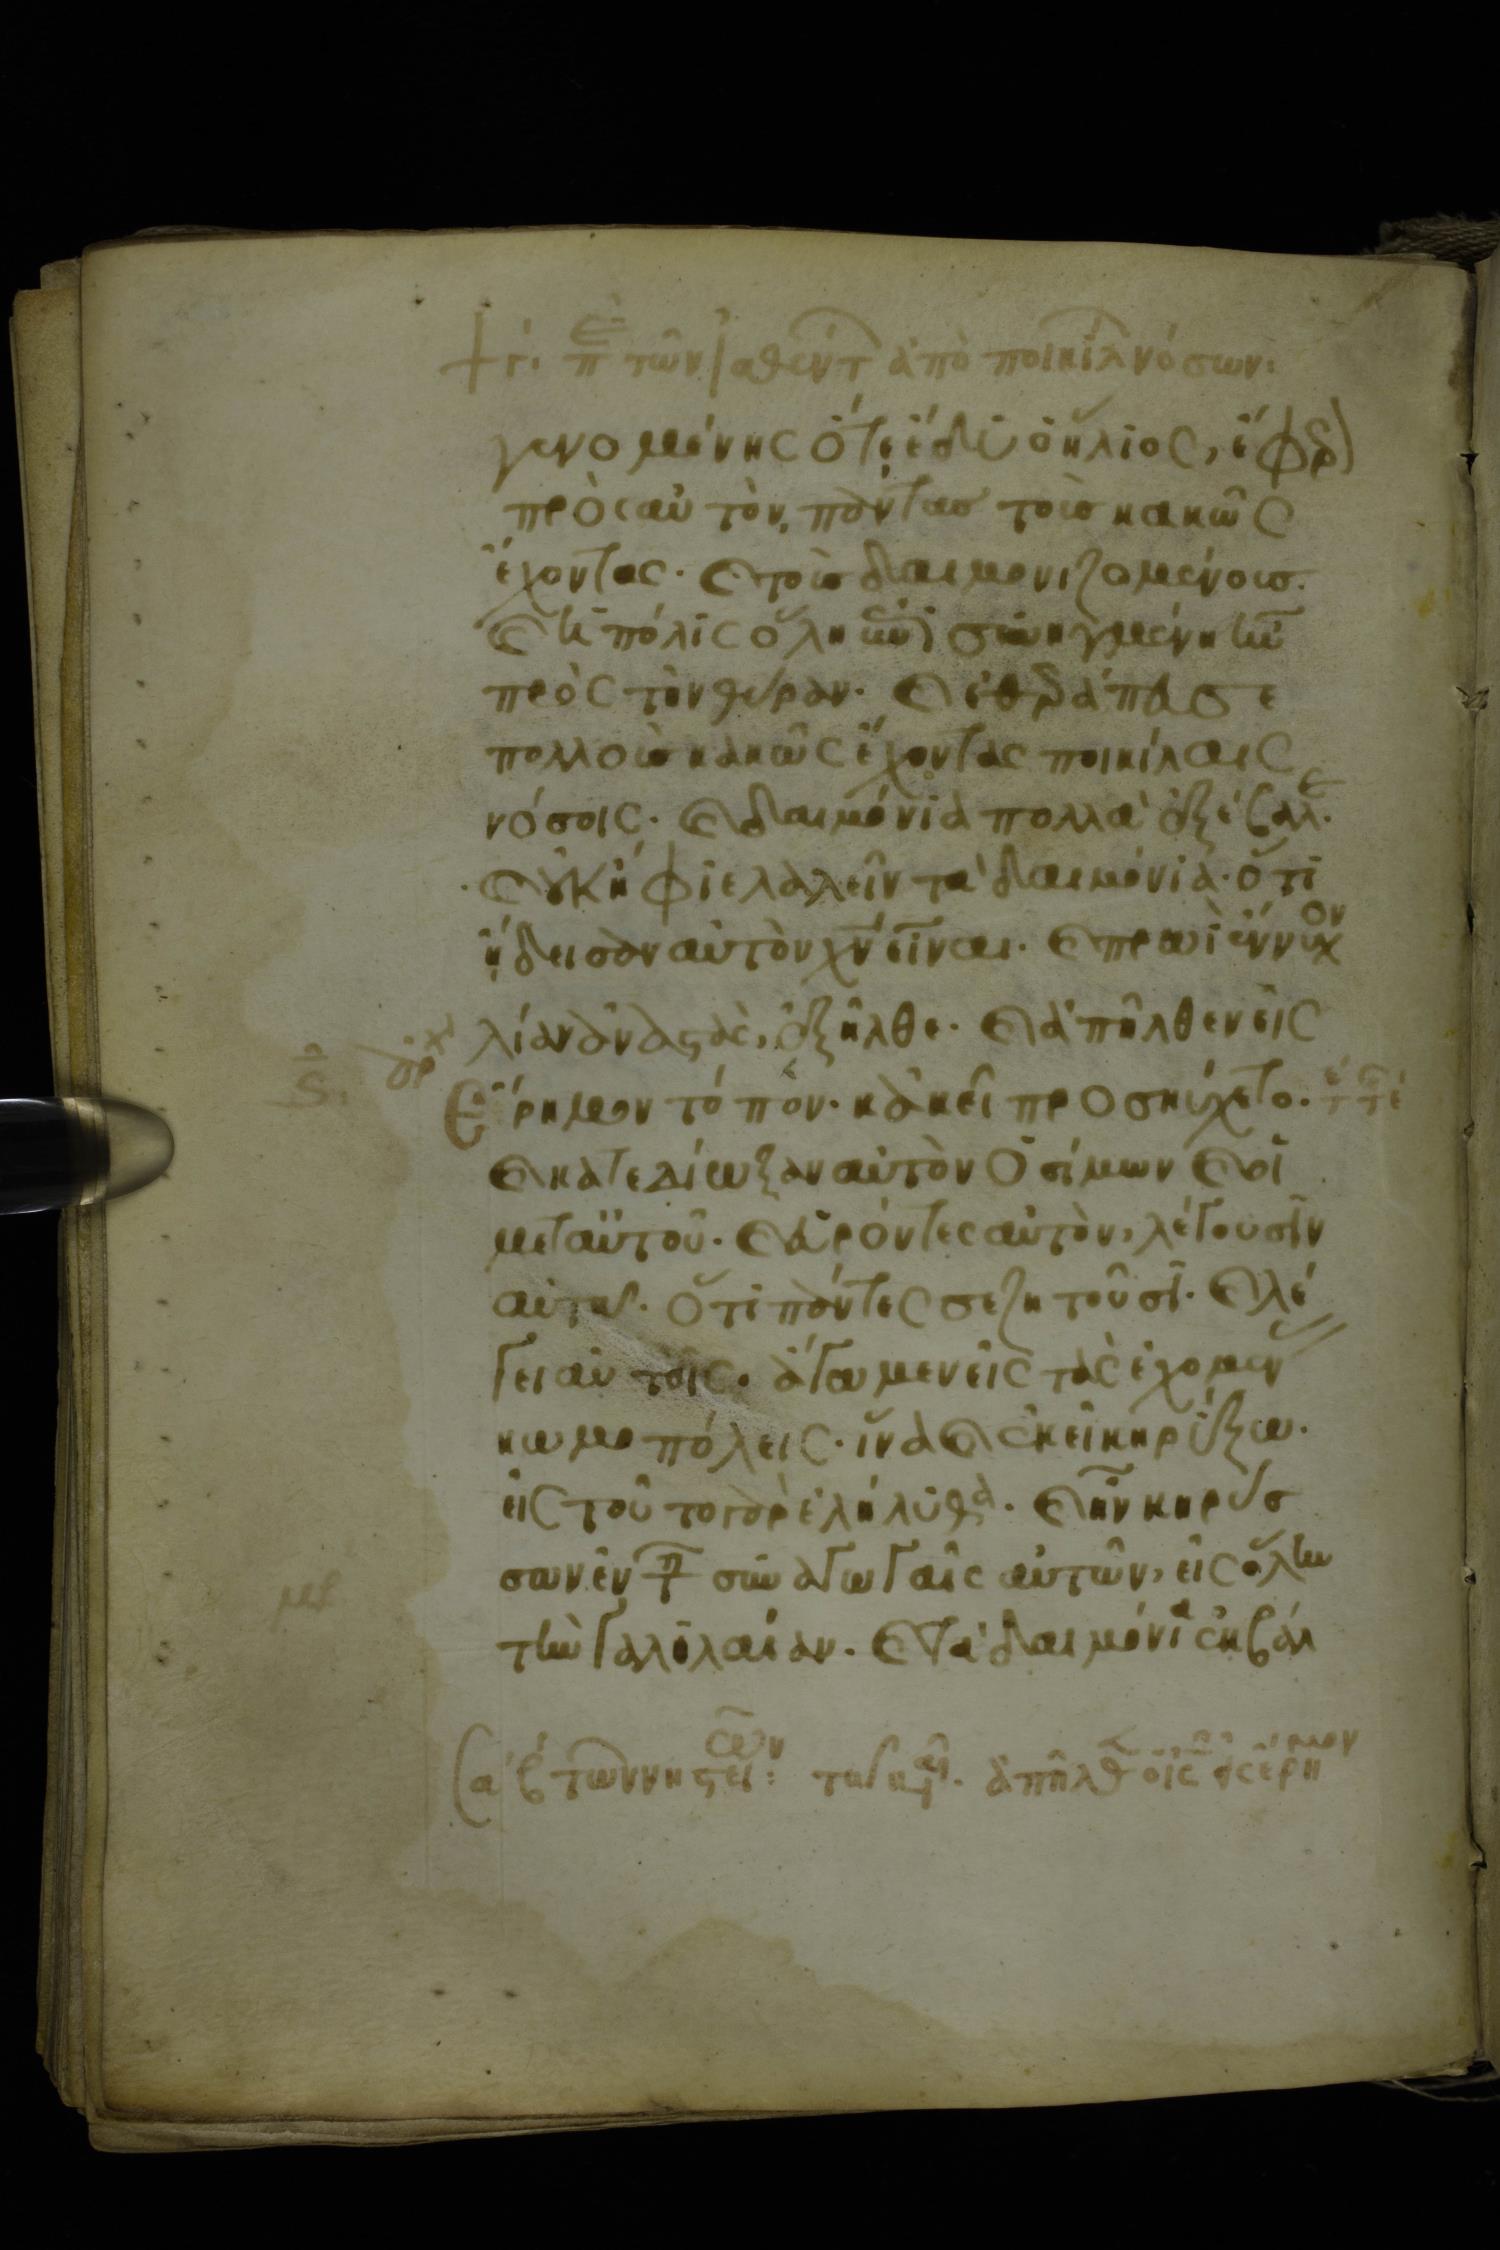 γ. π(ερὶ) τῶν ἰαθέντ ἀπὸ ποικίλ νόσων:
γενομένης ὅτε ἔδυ ὁ ἥλιος, ἔφερ
πρὸς αὐτὸν, πάντας τοὺς κακῶς
ἔχοντας. καὶ τοὺς δαιμονιζομένους.
καὶ ἡ πόλις ὅλη ἐπισυνηγμένη ἦν
πρὸς τὴν θύραν. καὶ ἐθεράπευσε
πολλοὺς κακῶς ἔχοντας ποικίλαις
νόσοις. καὶ δαιμόνια πολλὰ ἐξέβαλε.
καὶ οὐκ ἤφιε λαλεῖν τὰ δαιμόνια. ὅτι
ᾔδεισαν αὐτὸν χν εἶναι. καὶ πρωὶ ἔννυχον
λίαν ἀναστὰς, ἐξῆλθε. καὶ ἀπῆλθεν εἰς
ἔρημον τόπον. κἀκεῖ προσηύχετο.
καὶ κατεδίωξαν αὐτὸν ὁ σίμων καὶ οἱ
μετ αὐτοῦ. καὶ εὑρόντες αὐτὸν, λέγουσιν
αὐτῶ. ὅτι πάντες σε ζητοῦσι. καὶ λέ
γει αὐτοῖς. ἄγωμεν εἰς τὰς ἐχομεν
κωμοπόλεις. ἵνα καὶ ἐκεῖ κηρύξω.
εἰς τοῦτο γὰρ ἐλήλυθα. καὶ ἦν κηρύσ
σων ἐν τ συναγωγαῖς αὐτῶν, εἰς ὅλην
τὴν γαλιλαίαν. καὶ τὰ δαιμόνια ἐκβάλ